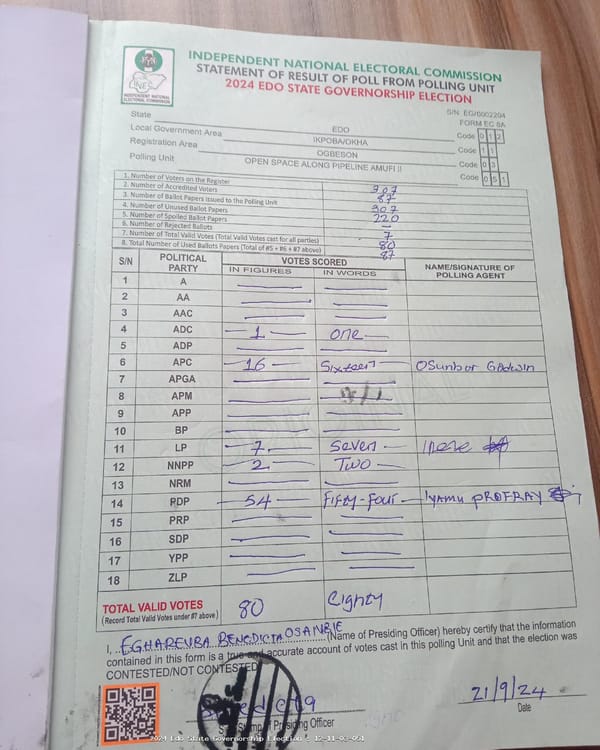 INDEPENDENT NATIONAL ELECTORAL COMMISSION
STATEMENT OF RESULT OF POLL FROM POLLING UNIT
2024 EDO STATE GOVERNORSHIP ELECTION
INEC
INDEPENDENT NATIONAL ELECTORAL COMMISSION
S/N: EG/0002204
FORM EC 8A
State EDO Code 0 1 2
Local Government Area IKPOBA/OKHA Code 1 1
Registration Area OGBESON Code 0 3
Polling Unit OPEN SPACE ALONG PIPELINE AMUFI II Code 0 5 1
1. Number of Voters on the Register 307
2. Number of Accredited Voters 87
3. Number of Ballot Papers issued to the Polling Unit 307
4. Number of Unused Ballot Papers 220
5. Number of Spoiled Ballot Papers —
6. Number of Rejected Ballots 7
7. Number of Total Valid Votes (Total Valid Votes cast for all parties) 80
8. Total Number of Used Ballots Papers (Total of #5 + #6 + #7 above) 87
S/N POLITICAL PARTY VOTES SCORED NAME/SIGNATURE OF POLLING AGENT
IN FIGURES IN WORDS
1 A
2 AA
3 AAC
4 ADC 1 one
5 ADP
6 APC 16 Sixteen Osunbor Godwin
7 APGA
8 APM
9 APP
10 BP
11 LP 7 Seven
12 NNPP 2 Two
13 NRM
14 PDP 54 Fifty-Four Iyamu PROFRAY
15 PRP
16 SDP
17 YPP
18 ZLP
TOTAL VALID VOTES 80 Eighty
(Record Total Valid Votes under #7 above)
I, EGHAREVBA BENEDICTA OSANBIE (Name of Presiding Officer) hereby certify that the information
contained in this form is a true and accurate account of votes cast in this polling Unit and that the election was
CONTESTED/NOT CONTESTED
21/9/24
Presiding Officer
Date
2024 Edo State Governorship Election